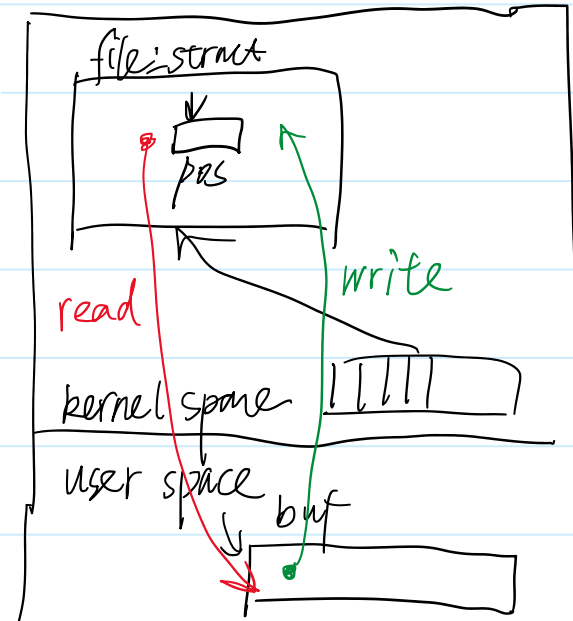 file_struct
pos
read
write
kernel space
user space
buf